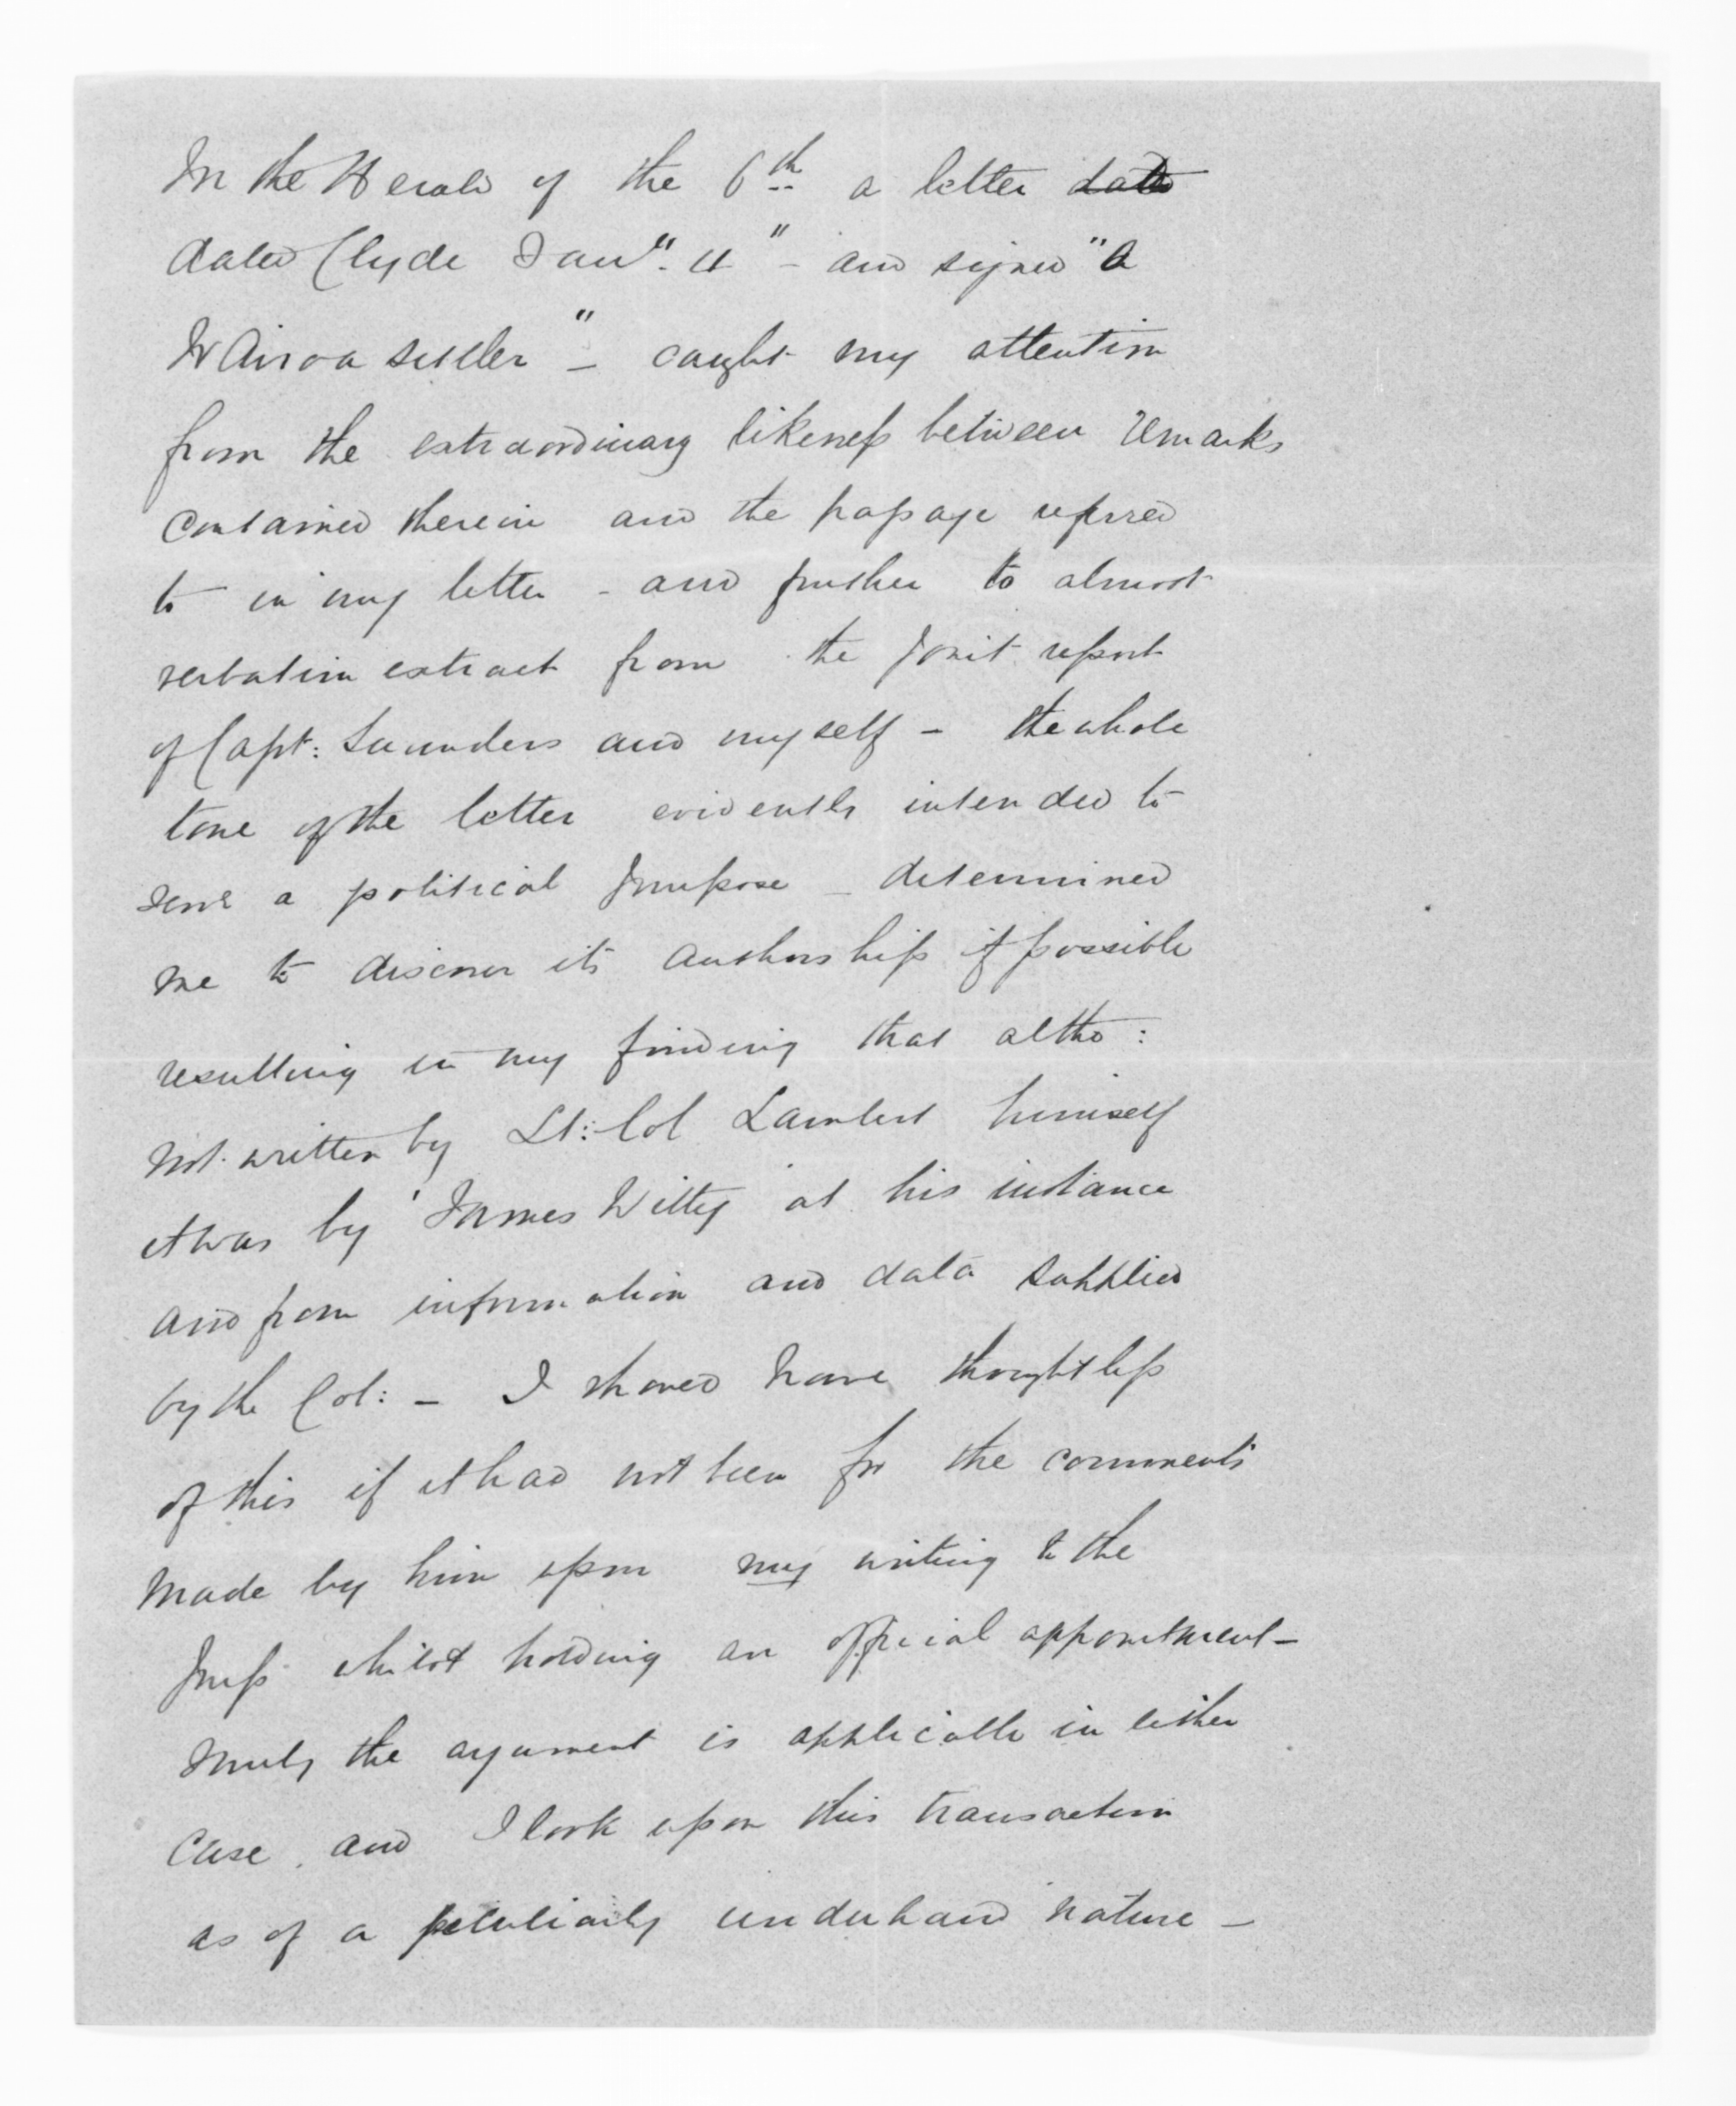 In the Herald of the 6th a letter date
dated Clyde Jany. 4" - and signed "A
Wairoa settler" - caught my attention
from the extraordinary likeness between remarks
contained therein and the passage referred
to in my letter - and further to almost
verbatim extract from the joint report
of Capt: Saunders and myself - the whole
tone of the letter evidently intended to
serve a political purpose - determined
me to discover its authorship if possible
resulting in my finding that altho:
not written by Lt: Col Lambert himself
it was by James Witty at his instance
and from information and data supplied
by the Col: - I should have thought less
of this if it had not been for the comments
made by him upon my writing to the
Press whilst holding an official appointment -
surely the argument is applicable in either
case, and I look upon this transaction
as of a peculiarly underhand nature -